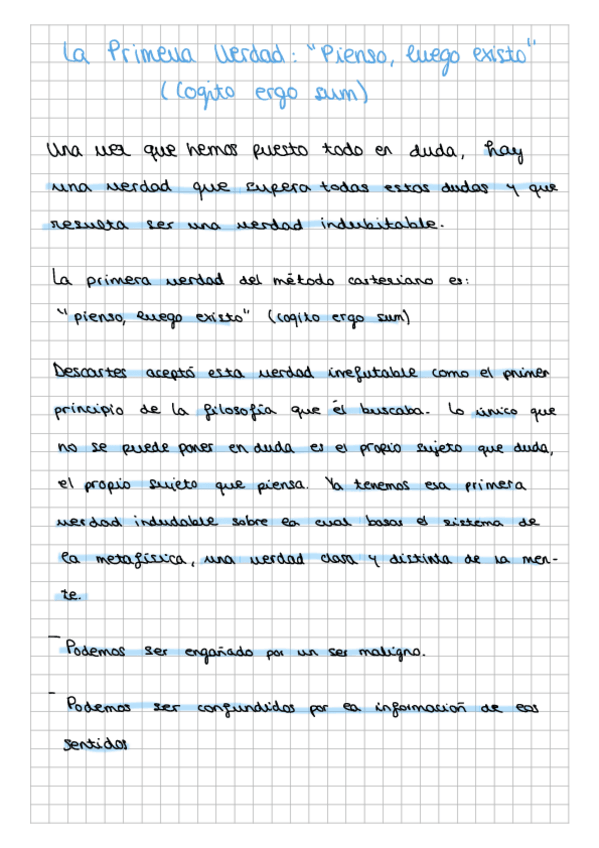 La Primera Verdad: "Pienso, luego existo"
(Cogito ergo sum)
Una vez que hemos puesto todo en duda, hay
una verdad que supera todas estas dudas y que
resulta ser una verdad indubitable.
La primera verdad del método cartesiano es:
"pienso, luego existo" (cogito ergo sum)
Descartes aceptó esta verdad irrefutable como el primer
principio de la filosofía que él buscaba. Lo único que
no se puede poner en duda es el propio sujeto que duda,
el propio sujeto que piensa. Ya tenemos esa primera
verdad indudable sobre la cual basar el sistema de
la metafísica, una verdad clara y distinta de la men-
te.
- Podemos ser engañado por un ser maligno.
- Podemos ser confundidos por la información de los
sentidos